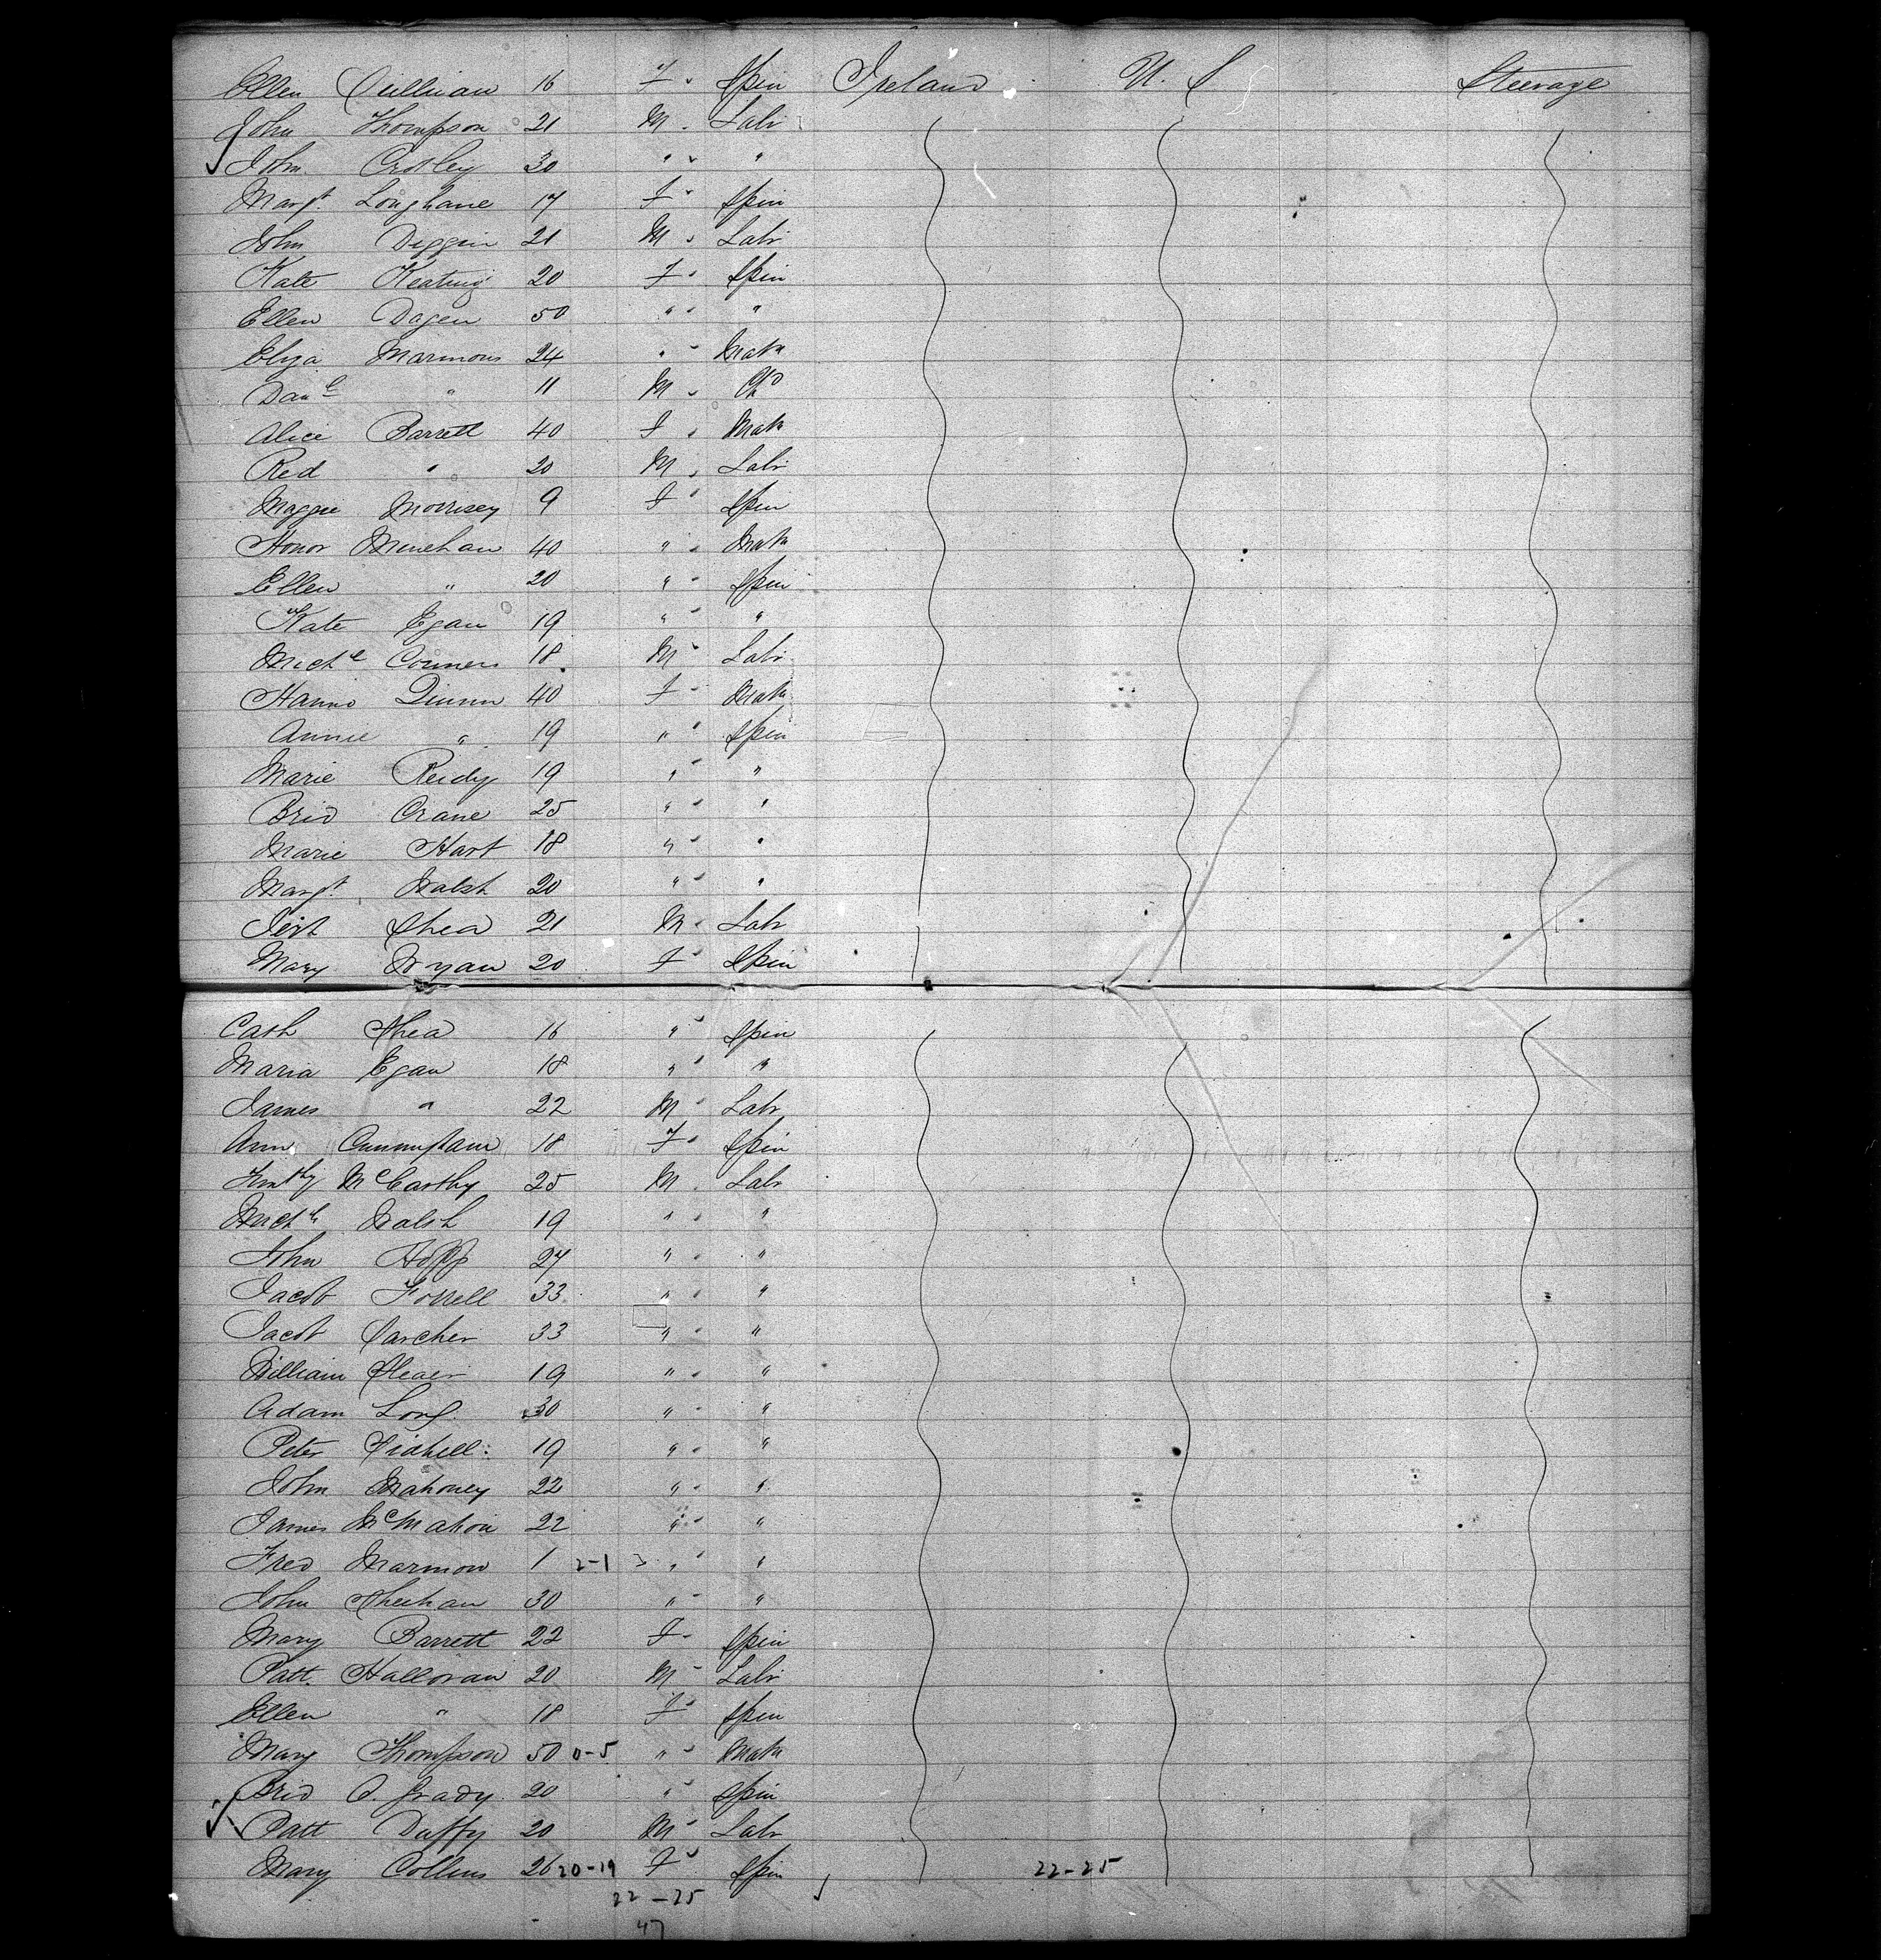 Ellen Cullinan 16 F " Spin Ireland U. S Steerage
John Thompson 21 M " Labr
John Crosley 30 " " "
Margt Loughane 17 F " Spin
John Diggin 21 M " Labr
Kate Keating 20 F " Spin
Ellen Dagen 50 " " "
Eliza Marmon 24 " " Matn
Danl " 11 M " Chd
Alice Barrett 40 F " Matn
Red " 20 M " Labr
Maggie Morrisey 9 F " Spin
Honor Minehan 40 " " Matn
Ellen " 20 " " Spin
Kate Egan 19 " " "
Michl Conners 18 M " Labr
Hanno Quinn 40 F " Matn
Annie " 19 " " Spin
Marie Reidy 19 " " "
Brid Crane 25 " " "
Marie Hart 18 " " "
Margt Walsh 20 " " "
Shea 21 M " Labr
Mary Ryan 20 F " Spin
Cath Shea 16 " " Spin
Maria Egan 18 " " "
James " 22 M " Labr
Ann Cunningham 18 F " Spin
Timthy McCarthy 25 M " Labr
Michl Walsh 19 " " "
John Hopp 27 " " "
Jacob Forrell 33 " " "
Jacob Carcher 33 " " "
William 19 " " "
Adam Long 30 " " "
Peter 19 " " "
John Mahoney 22 " " "
James McMahon 22 " " "
Fred Marmon 1 2-1 " " "
John Sheehan 30 " " "
Mary Barrett 22 F " Spin
Patt. Halloran 20 M " Labr
Ellen " 18 F " Spin
Mary Thompson 50 0-5 " " Matn
Brid O. Grady 20 " " Spin
Patt Duffy 20 M " Labr
Mary Collins 26 20-19 F " Spin 22-25
22-25
47